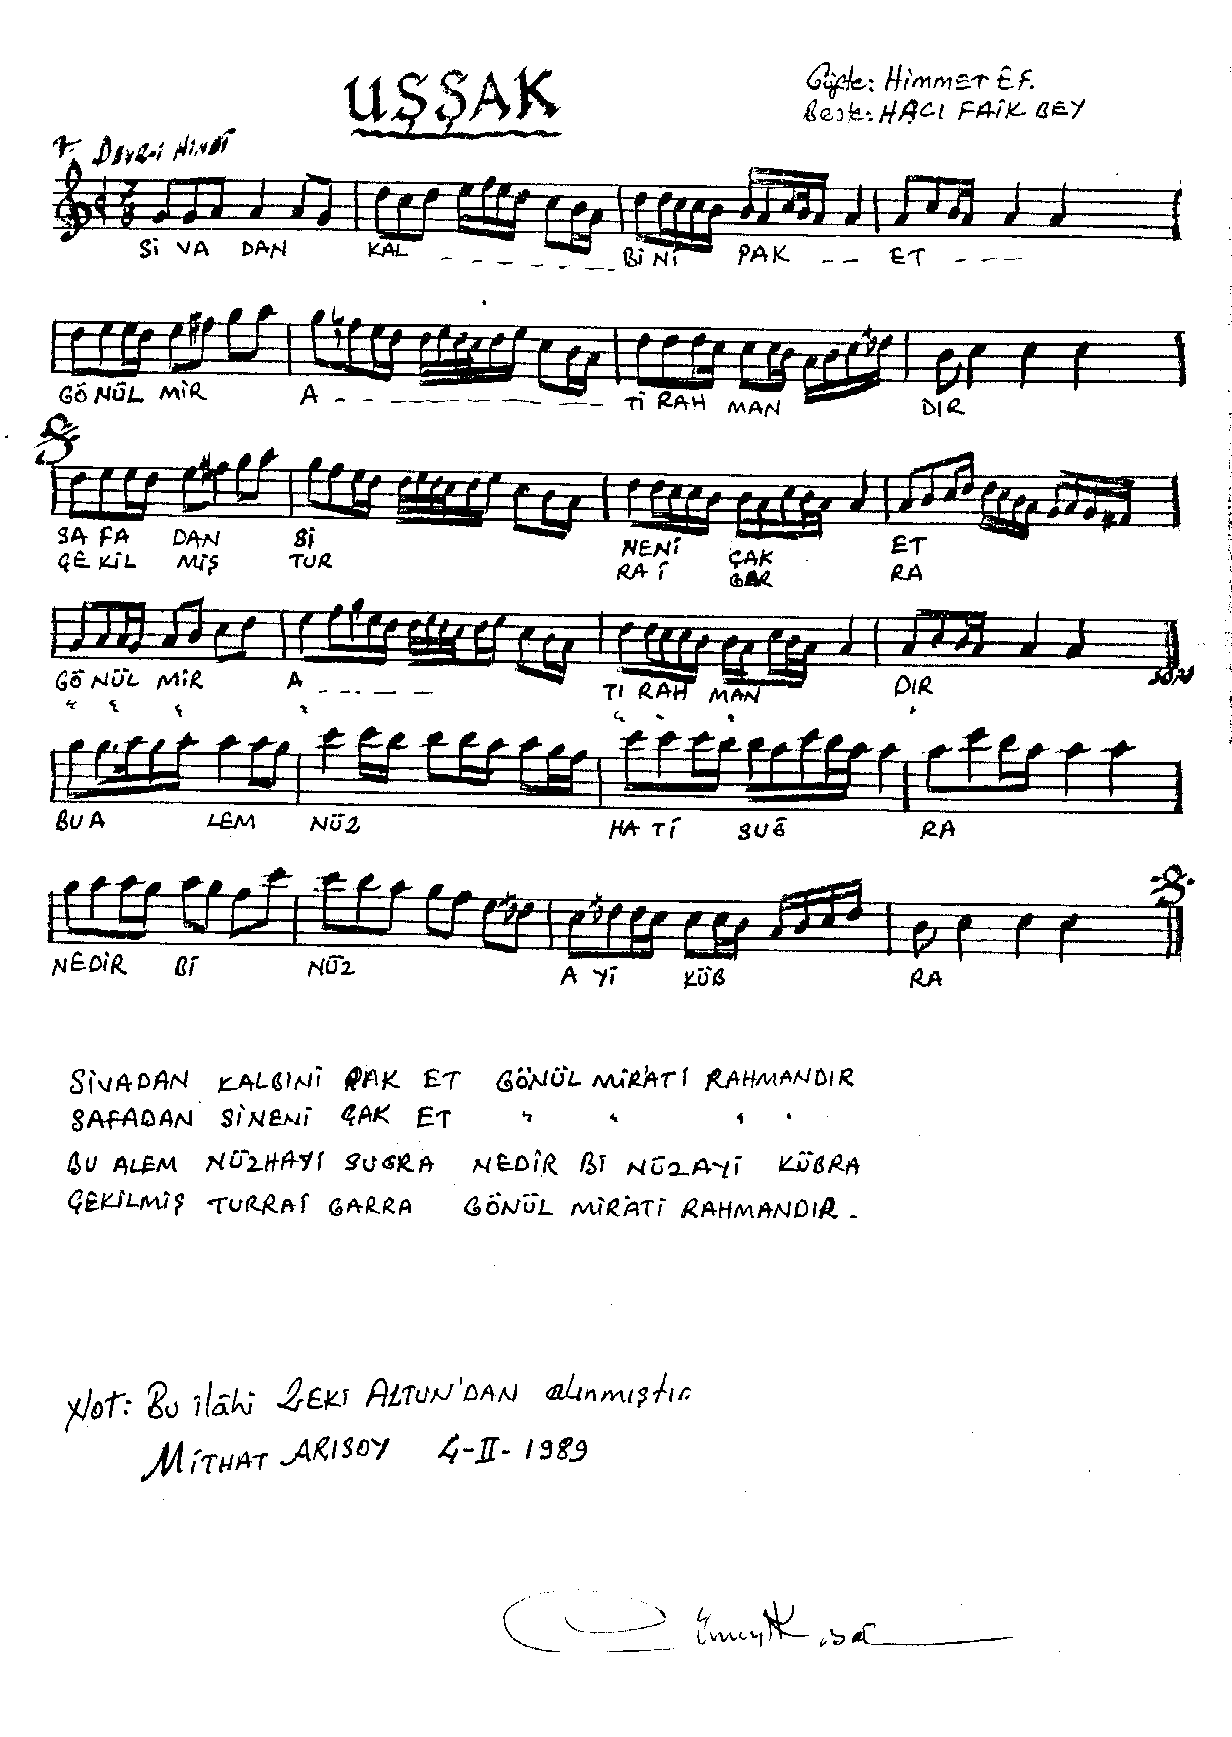 UŞŞAK
Güfte: HİMMET EF.
Beste: HACI FAİK BEY
DEVR-İ HİNDİ
7
8
Sİ VA DAN KAL - - - - - - BİNİ PAK - - ET - - -
GÖ NÜL MİR A - - - - - - - - - - Tİ RAH MAN DIR
SA FA DAN Sİ NENİ ÇAK ET
ÇE KİL MİŞ TUR RA İ GAR RA
GÖ NÜL MİR A - - - - - TI RAH MAN DIR
SON
BU A LEM NÜZ HA Tİ SUĞ RA
NEDİR Bİ NÜZ A Yİ KÜB RA
SİVADAN KALBİNİ PAK ET GÖNÜL MİR'ATİ RAHMANDIR
SAFADAN SİNENİ ÇAK ET " " " "
BU ALEM NÜZHAYİ SUĞRA NEDİR Bİ NÜZAYİ KÜBRA
ÇEKİLMİŞ TURRAİ GARRA GÖNÜL MİR'ATİ RAHMANDIR.
NOT: Bu ilâhi ZEKİ ALTUN'DAN alınmıştır
MİTHAT ARISOY 4-II-1989